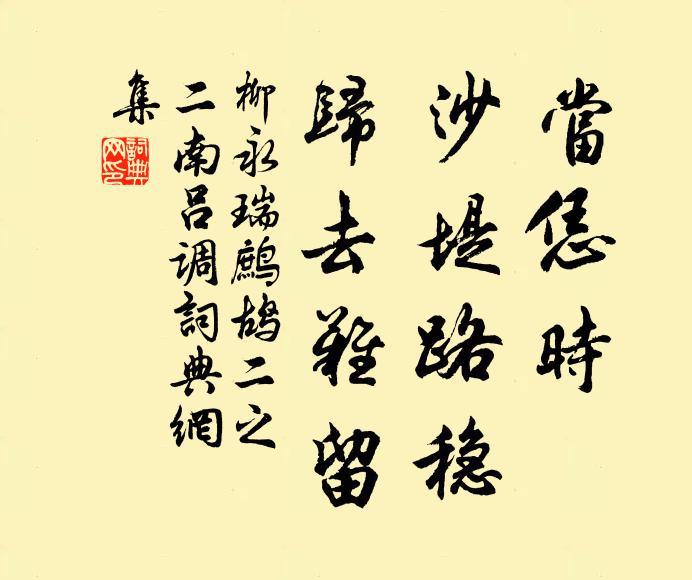 當恁時
沙堤路稳
歸去難留
柳永瑞鷓鴣二之
二南吕调詞典網
集
詞典
网印